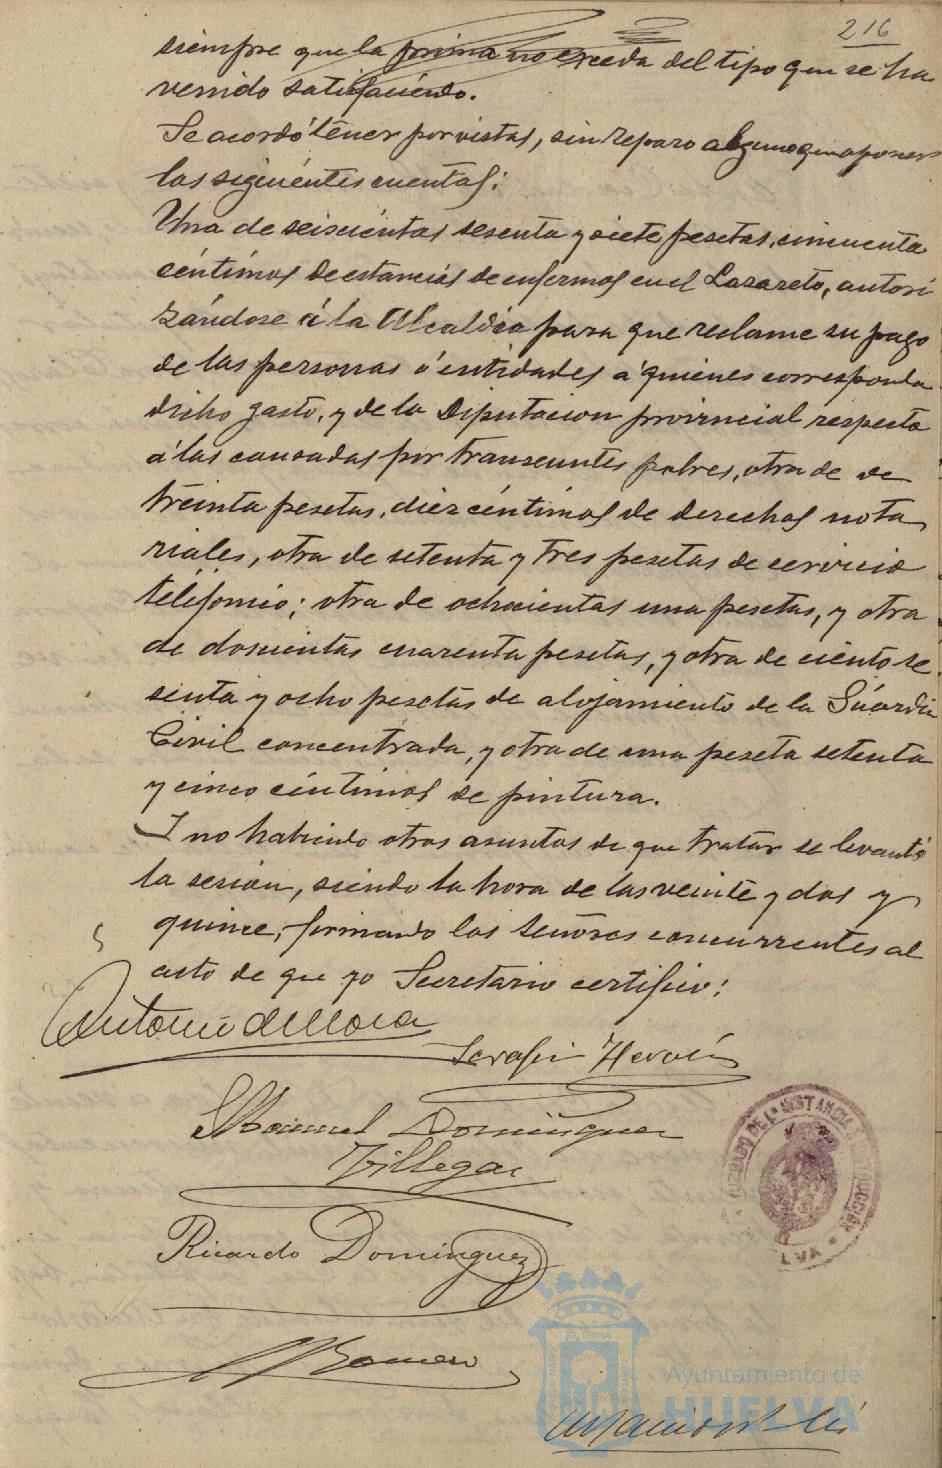 216
siempre que la prima no exceda del tipo que se ha
venido satisfaciendo.
Se acordó tener por vistas, sin reparo alguno que oponer
las siguientes cuentas:
Una de seiscientas sesenta y siete pesetas, cincuenta
céntimos de estancias de enfermos en el Lazareto, autori
zándose á la Alcaldía para que reclame su pago
de las personas ó entidades á quienes corresponda
dicho gasto, y de la Diputacion provincial respecto
á las causadas por transeuntes pobres, otra de de
treinta pesetas, diez céntimos de derechos nota
riales, otra de setenta y tres pesetas de servicio
teléfonico; otra de ochocientas una pesetas, y otra
de doscientas cuarenta pesetas, y otra de ciento se
senta y ocho pesetas de alojamiento de la Guardia
Civil concentrada, y otra de una peseta setenta
y cinco céntimos de pintura.
Y no habiendo otros asuntos de que tratar se levantó
la sesion, siendo la hora de las veinte y dos y
quince, firmando los señores concurrentes al
acto de que yo Secretario certifico:
Antonio de Mora
Serafin
Manuel Dominguez
Villegas
Ricardo Dominguez
JUZGADO DE 1ª INSTANCIA É INSTRUCCIÓN
HUELVA
Ayuntamiento de
HUELVA